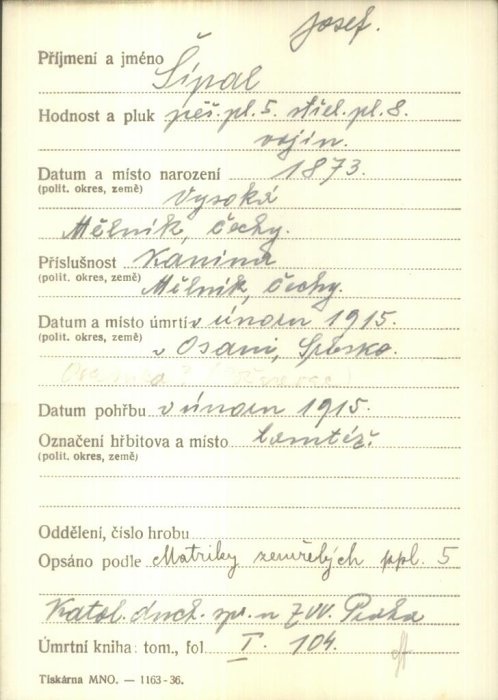 Josef.
Příjmení a jméno Šípal
Hodnost a pluk pěš. pl. 5. střel. pl. 8.
vojín.
Datum a místo narození 1873.
(polit. okres, země) Vysoká
Mělník, Čechy.
Příslušnost Kanina
(polit. okres, země) Mělník, Čechy.
Datum a místo úmrtí v únoru 1915.
(polit. okres, země) v Osani, Srbsko.
Datum pohřbu v únoru 1915.
Označení hřbitova a místo tamtéž.
(polit. okres, země)
Oddělení, číslo hrobu
Opsáno podle Matriky zemřelých ppl. 5
Katol. duch. spr. u ZVV. Praha
Úmrtní kniha: tom., fol. I. 104.
Tiskárna MNO. — 1163-36.